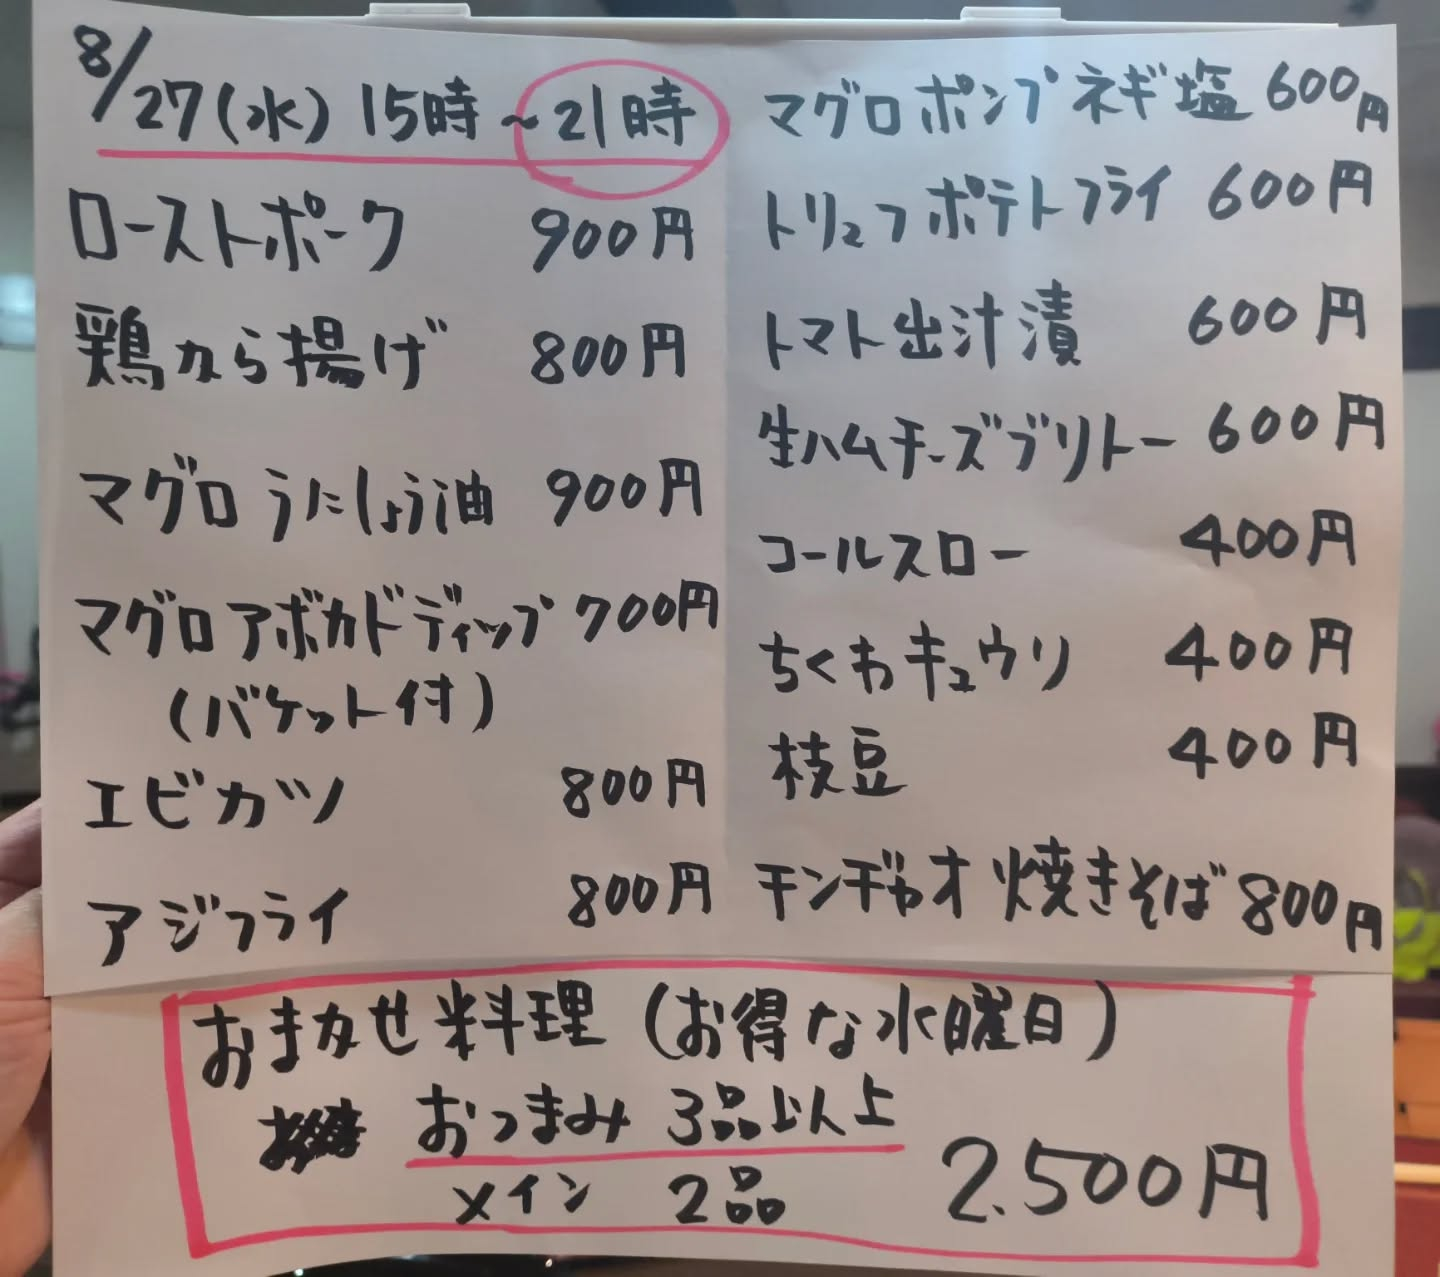 8/27(水) 15時~21時
ローストポーク 900円
鶏から揚げ 800円
マグロ うにしょう油 900円
マグロアボカドディップ 700円
(バケット付)
エビカツ 800円
アジフライ 800円
マグロポンプネギ塩 600円
トリュフポテトフライ 600円
トマト出汁漬 600円
生ハムチーズブリトー 600円
コールスロー 400円
ちくわキュウリ 400円
枝豆 400円
チンヂャオ焼きそば 800円
おまかせ料理(お得な水曜日)
おつまみ 3品以上
メイン 2品 2.500円